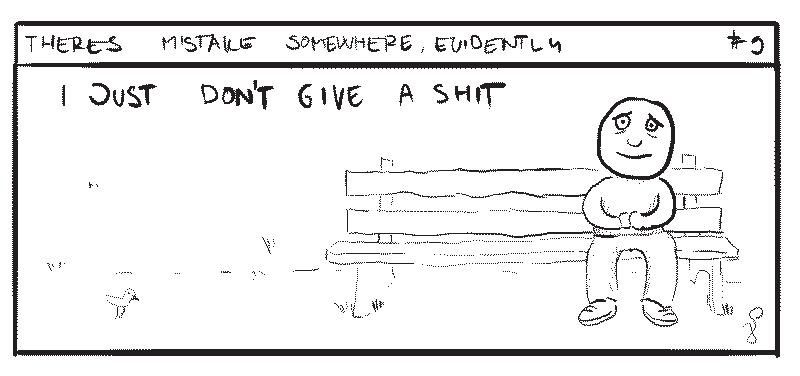 THERES MISTAKE SOMEWHERE, EVIDENTLY #9
I JUST DON'T GIVE A SHIT